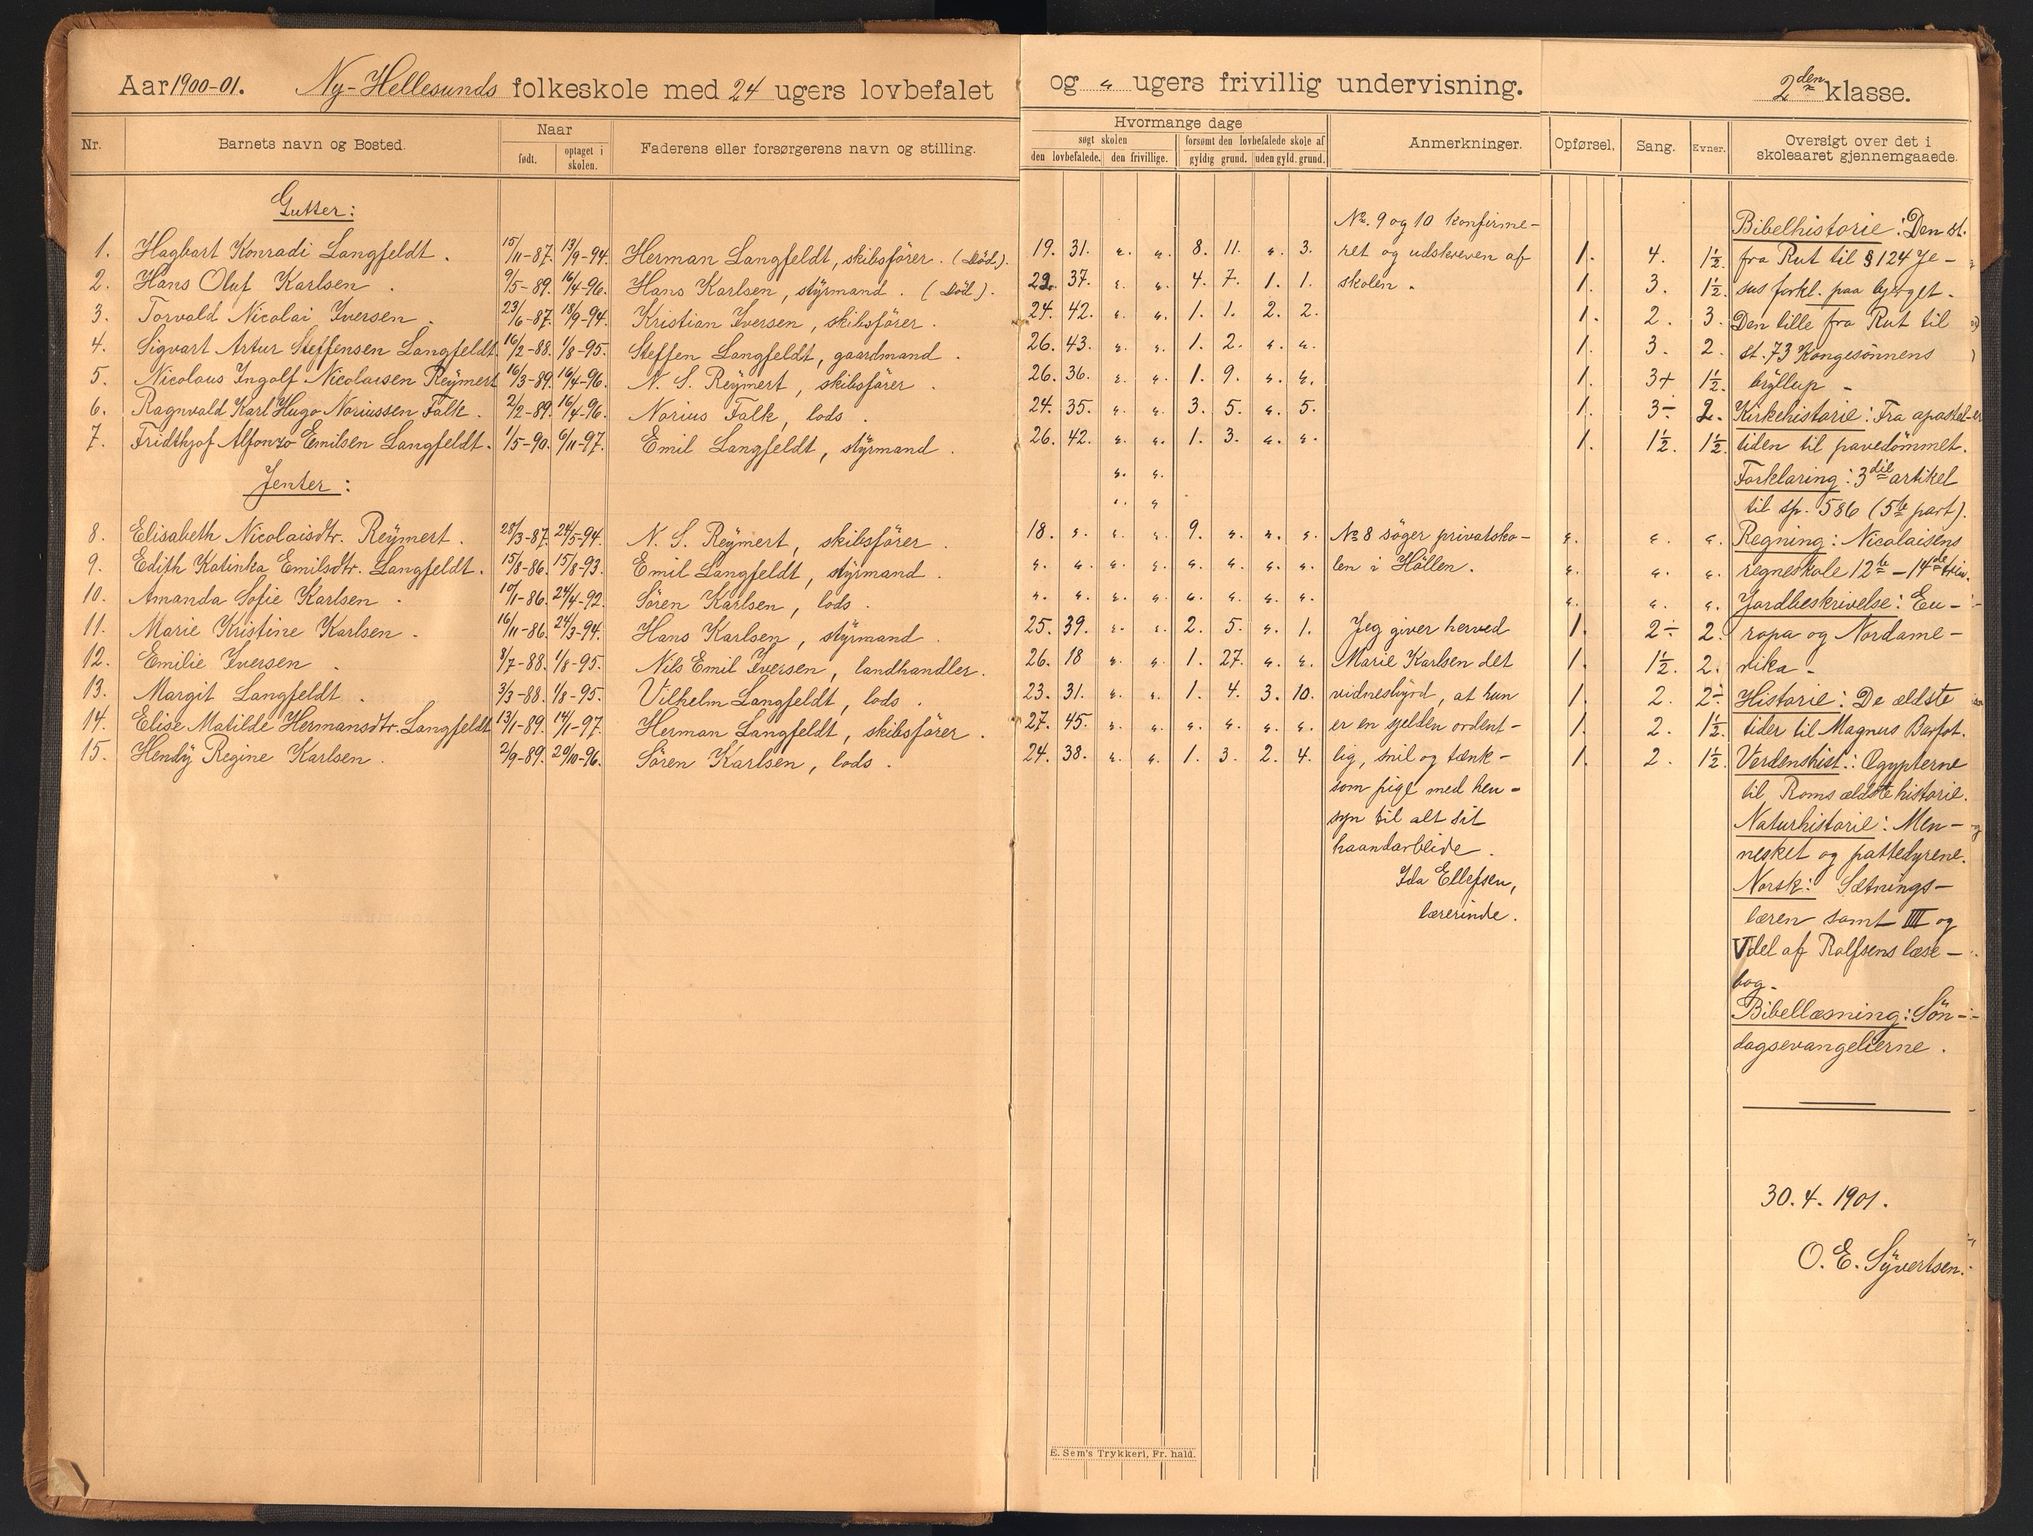 Aar 1900-01. Ny-Hellesunds folkeskole med 24 ugers lovbefalet og " ugers frivillig undervisning. 2den klasse.
Nr. Barnets navn og Bosted. Naar født. optaget i skolen. Faderens eller forsørgerens navn og stilling.
Hvormange dage søgt skolen den lovbefalede. den frivillige. forsømt den lovbefalede skole af gyldig grund. uden gyld. grund. Anmerkninger. Opførsel. Sang. Evner. Oversigt over det i skoleaaret gjennemgaaede.
Gutter:
1. Hagbart Konradi Langfeldt. 15/11-87. 13/9-94. Herman Langfeldt, skibsfører. (Död).
2. Hans Oluf Karlsen. 9/5-89. 16/4-96. Hans Karlsen, styrmand. (Död).
3. Torvald Nicolai Iversen. 23/6-87. 18/9-94. Kristian Iversen, skibsfører.
4. Sigvart Artur Steffensen Langfeldt 16/2-88. 1/8-95. Steffen Langfeldt, gaardmand.
5. Nicolaus Ingolf Nicolaisen Reymert 16/3-89. 16/4-96. N. S. Reymert, skibsfører.
6. Ragnvald Karl Hugo Noriussen Falk. 2/2-89. 16/4-96. Norius Falk, lods.
7. Fridthjof Alfonzo Emilsen Langfeldt. 1/5-90. 6/11-97. Emil Langfeldt, styrmand.
Jenter:
8. Elisabeth Nicolaisdtr. Reymert. 28/3-87. 24/5-94. N. S. Reymert, skibsfører.
9. Edith Katinka Emilsdtr. Langfeldt. 15/8-86. 15/8-93. Emil Langfeldt, styrmand.
10. Amanda Sofie Karlsen. 10/1-86. 24/4-92. Sören Karlsen, lods.
11. Marie Kristine Karlsen. 16/11-86. 24/3-94. Hans Karlsen, styrmand.
12. Emilie Iversen. 8/7-88. 1/8-95. Nils Emil Iversen, landhandler.
13. Margit Langfeldt. 3/3-88. 1/8-95. Vilhelm Langfeldt, lods.
14. Elise Matilde Hermansdtr. Langfeldt 13/1-89. 14/1-97. Herman Langfeldt, skibsfører.
15. Hendy Regine Karlsen. 2/9-89. 20/10-96. Sören Karlsen, lods.
19. 31. " " 8. 11. " 3. 1. 4. 1½
22. 37. " " 4. 7. 1. 1. 1. 3. 1½
24. 42. " " 1. 1. 2. 2. 1. 2. 3.
26. 43. " " 1. 2. " " 1. 3. 2.
26. 36. " " 1. 9. " " 1. 3+ 1½
24. 35. " " 3. 5. " 5. 1. 3÷ 2.
26. 42. " " 1. 3. " " 1. 1½ 1½
" "
" "
18. " " " 9. " " " " " "
" " " " " " " " " " "
" " " " " " " " " " "
25. 39. " " 2. 5. " 1. 1. 2÷ 2.
26. 18 " " 1. 27. " " 1. 1½ 2.
23. 31. " " 1. 4. 3. 10. 1. 2. 2÷
27. 45. " " " " " " 1. 2. 1½
24. 38. " " 1. 3. 2. 4. 1. 2. 1½
No. 9 og 10 konfirme-
ret og udskreven af
skolen.
No 8 søger privatsko-
len i Höllen.
Jeg giver herved
Marie Karlsen det
vidnesbyrd, at hun
er en sjelden ordent-
lig, snil og tænk-
som pige med hen-
syn til alt sit
haandarbeide.
Ida Ellefsen,
lærerinde.
Bibelhistorie: Den st.
fra Rut til § 124 Je-
sus forkl. paa bjerget.
Den lille fra Rut til
st. 73 Kongesønnens
bryllup -
Kirkehistorie: Fra apostel-
tiden til pavedömmet.
Forklaring: 3die artikel
til sp. 586 (5te part).
Regning: Nicolaisens
regneskole 12te - 14de trin.
Jordbeskrivelse: Eu-
ropa og Nordame-
rika -
Historie: De ældste
tider til Magnus Barfot.
Verdenshist.: Ægypterne
til Roms ældste historie.
Naturhistorie: Men-
nesket og pattedyrene.
Norsk: Sætnings-
læren samt IIII og
V del af Rolfsens læse-
bog.
Bibellæsning: Sön-
dagsevangelierne.
30. 4. 1901.
O. E. Syvertsen.
E. Sem's Trykkeri, Fr. hald.